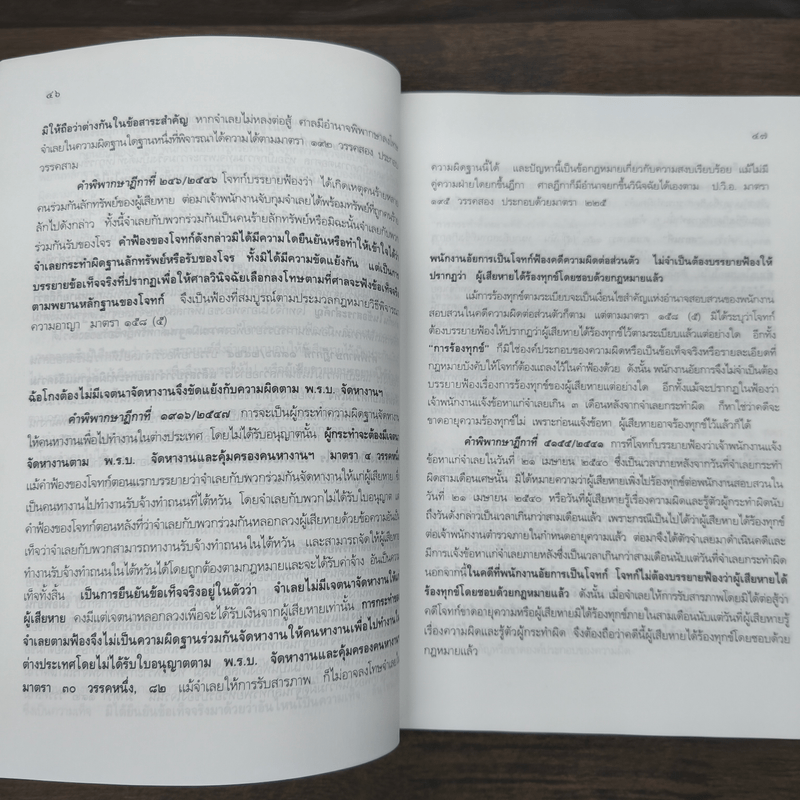 ๔๖
มิให้ถือว่าต่างกันในข้อสาระสำคัญ หากจำเลยไม่หลงต่อสู้ ศาลมีอำนาจพิพากษาลงโทษ
จำเลยในความผิดฐานใดฐานหนึ่งที่พิจารณาได้ความได้ตามมาตรา ๑๙๒ วรรคสอง ประกอบ
วรรคสาม
คำพิพากษาฎีกาที่ ๒๔๖/๒๕๔๖ โจทก์บรรยายฟ้องว่า ได้เกิดเหตุคนร้าย
คนร่วมกันลักทรัพย์ของผู้เสียหาย ต่อมาเจ้าพนักงานจับกุมจำเลยได้พร้อมทรัพย์ที่ถูกคนร้าย
ลักไปดังกล่าว ทั้งนี้จำเลยกับพวกร่วมกันเป็นคนร้ายลักทรัพย์หรือมิฉะนั้นจำเลยกับพวก
ร่วมกันรับของโจร คำฟ้องของโจทก์ดังกล่าวมิได้มีความใดยืนยันหรือทำให้เข้าใจได้ว่า
จำเลยกระทำผิดฐานลักทรัพย์หรือรับของโจร ทั้งมิได้มีความขัดแย้งกัน แต่เป็นการ
บรรยายข้อเท็จจริงที่ปรากฏเพื่อให้ศาลวินิจฉัยเลือกลงโทษตามที่ศาลจะฟังข้อเท็จจริง
ตามพยานหลักฐานของโจทก์ จึงเป็นฟ้องที่สมบูรณ์ตามประมวลกฎหมายวิธีพิจารณา
ความอาญา มาตรา ๑๕๘ (๕)
ฉ้อโกงต้องไม่มีเจตนาจัดหางานจึงขัดแย้งกับความผิดตาม พ.ร.บ. จัดหางานฯ
คำพิพากษาฎีกาที่ ๑๙๑๖/๒๕๔๗ การจะเป็นผู้กระทำความผิดฐานจัดหางาน
ให้คนหางานเพื่อไปทำงานในต่างประเทศ โดยไม่ได้รับอนุญาตนั้น ผู้กระทำจะต้องมีเจตนา
จัดหางานตาม พ.ร.บ. จัดหางานและคุ้มครองคนหางานฯ มาตรา ๔ วรรคหนึ่ง
แม้คำฟ้องของโจทก์ตอนแรกบรรยายว่าจำเลยกับพวกร่วมกันจัดหางานให้แก่ผู้เสียหาย
เป็นคนหางานไปทำงานรับจ้างทำถนนที่ไต้หวัน โดยจำเลยกับพวกไม่ได้รับใบอนุญาต
คำฟ้องของโจทก์ตอนหลังที่ว่าจำเลยกับพวกร่วมกันหลอกลวงผู้เสียหายด้วยข้อความอัน
เท็จว่าจำเลยกับพวกสามารถหางานรับจ้างทำถนนในไต้หวัน และสามารถจัดให้ผู้เสียหาย
ทำงานรับจ้างทำถนนในไต้หวันได้โดยถูกต้องตามกฎหมายและจะได้รับค่าจ้าง อันเป็นความ
เท็จทั้งสิ้น เป็นการยืนยันข้อเท็จจริงอยู่ในตัวว่า จำเลยไม่มีเจตนาจัดหางานให้แก่
ผู้เสียหาย คงมีแต่เจตนาหลอกลวงเพื่อจะได้รับเงินจากผู้เสียหายเท่านั้น การกระทำของ
จำเลยตามฟ้องจึงไม่เป็นความผิดฐานร่วมกันจัดหางานให้คนหางานเพื่อไปทำงานใน
ต่างประเทศโดยไม่ได้รับใบอนุญาตตาม พ.ร.บ. จัดหางานและคุ้มครองคนหางานฯ
มาตรา ๓๐ วรรคหนึ่ง, ๘๒ แม้จำเลยให้การรับสารภาพ ก็ไม่อาจลงโทษจำเลยใน
๔๗
ความผิดฐานนี้ได้ และปัญหานี้เป็นข้อกฎหมายเกี่ยวกับความสงบเรียบร้อย แม้ไม่มี
คู่ความฝ่ายใดยกขึ้นฎีกา ศาลฎีกาก็มีอำนาจยกขึ้นวินิจฉัยได้เองตาม ป.วิ.อ. มาตรา
๑๙๕ วรรคสอง ประกอบด้วยมาตรา ๒๒๕
พนักงานอัยการเป็นโจทก์ฟ้องคดีความผิดต่อส่วนตัว ไม่จำเป็นต้องบรรยายฟ้องให้
ปรากฏว่า ผู้เสียหายได้ร้องทุกข์โดยชอบด้วยกฎหมายแล้ว
แม้การร้องทุกข์ตามระเบียบจะเป็นเงื่อนไขสำคัญแห่งอำนาจสอบสวนของพนักงาน
สอบสวนในคดีความผิดต่อส่วนตัวก็ตาม แต่ตามมาตรา ๑๕๘ (๕) มิได้ระบุว่าโจทก์
ต้องบรรยายฟ้องให้ปรากฏว่าผู้เสียหายได้ร้องทุกข์ไว้ตามระเบียบแล้วแต่อย่างใด อีกทั้ง
"การร้องทุกข์" ก็มิใช่องค์ประกอบของความผิดหรือเป็นข้อเท็จจริงหรือรายละเอียดที่
กฎหมายบังคับให้โจทก์ต้องแถลงไว้ในคำฟ้องด้วย ดังนั้น พนักงานอัยการจึงไม่จำเป็นต้อง
บรรยายฟ้องเรื่องการร้องทุกข์ของผู้เสียหายแต่อย่างใด อีกทั้งแม้จะปรากฏในฟ้องว่า
เจ้าพนักงานแจ้งข้อหาแก่จำเลยเกิน ๓ เดือนหลังจากจำเลยกระทำผิด ก็หาใช่ว่าคดีจะ
ขาดอายุความร้องทุกข์ไม่ เพราะก่อนแจ้งข้อหา ผู้เสียหายอาจร้องทุกข์ไว้แล้วก็ได้
คำพิพากษาฎีกาที่ ๕๑๕๕/๒๕๔๑ การที่โจทก์บรรยายฟ้องว่าเจ้าพนักงานแจ้ง
ข้อหาแก่จำเลยในวันที่ ๒๑ เมษายน ๒๕๔๐ ซึ่งเป็นเวลาภายหลังจากวันที่จำเลยกระทำ
ผิดสามเดือนเศษนั้น มิได้หมายความว่าผู้เสียหายเพิ่งไปร้องทุกข์ต่อพนักงานสอบสวนใน
วันที่ ๒๑ เมษายน ๒๕๔๐ หรือวันที่ผู้เสียหายรู้เรื่องความผิดและรู้ตัวผู้กระทำผิดนับ
ถึงวันดังกล่าวเป็นเวลาเกินกว่าสามเดือนแล้ว เพราะกรณีเป็นไปได้ว่าผู้เสียหายได้ร้องทุกข์
ต่อเจ้าพนักงานตำรวจภายในกำหนดอายุความแล้ว ต่อมาจึงได้ตัวจำเลยมาดำเนินคดีและ
มีการแจ้งข้อหาแก่จำเลยภายหลังซึ่งเป็นเวลาเกินกว่าสามเดือนนับแต่วันที่จำเลยกระทำผิด
นอกจากนี้ในคดีที่พนักงานอัยการเป็นโจทก์ โจทก์ไม่ต้องบรรยายฟ้องว่าผู้เสียหายได้
ร้องทุกข์โดยชอบด้วยกฎหมายแล้ว ดังนั้น เมื่อจำเลยให้การรับสารภาพโดยมิได้ต่อสู้ว่า
คดีโจทก์ขาดอายุความหรือผู้เสียหายมิได้ร้องทุกข์ภายในสามเดือนนับแต่วันที่ผู้เสียหายรู้
เรื่องความผิดและรู้ตัวผู้กระทำผิด จึงต้องถือว่าคดีนี้ผู้เสียหายได้ร้องทุกข์โดยชอบด้วย
กฎหมายแล้ว